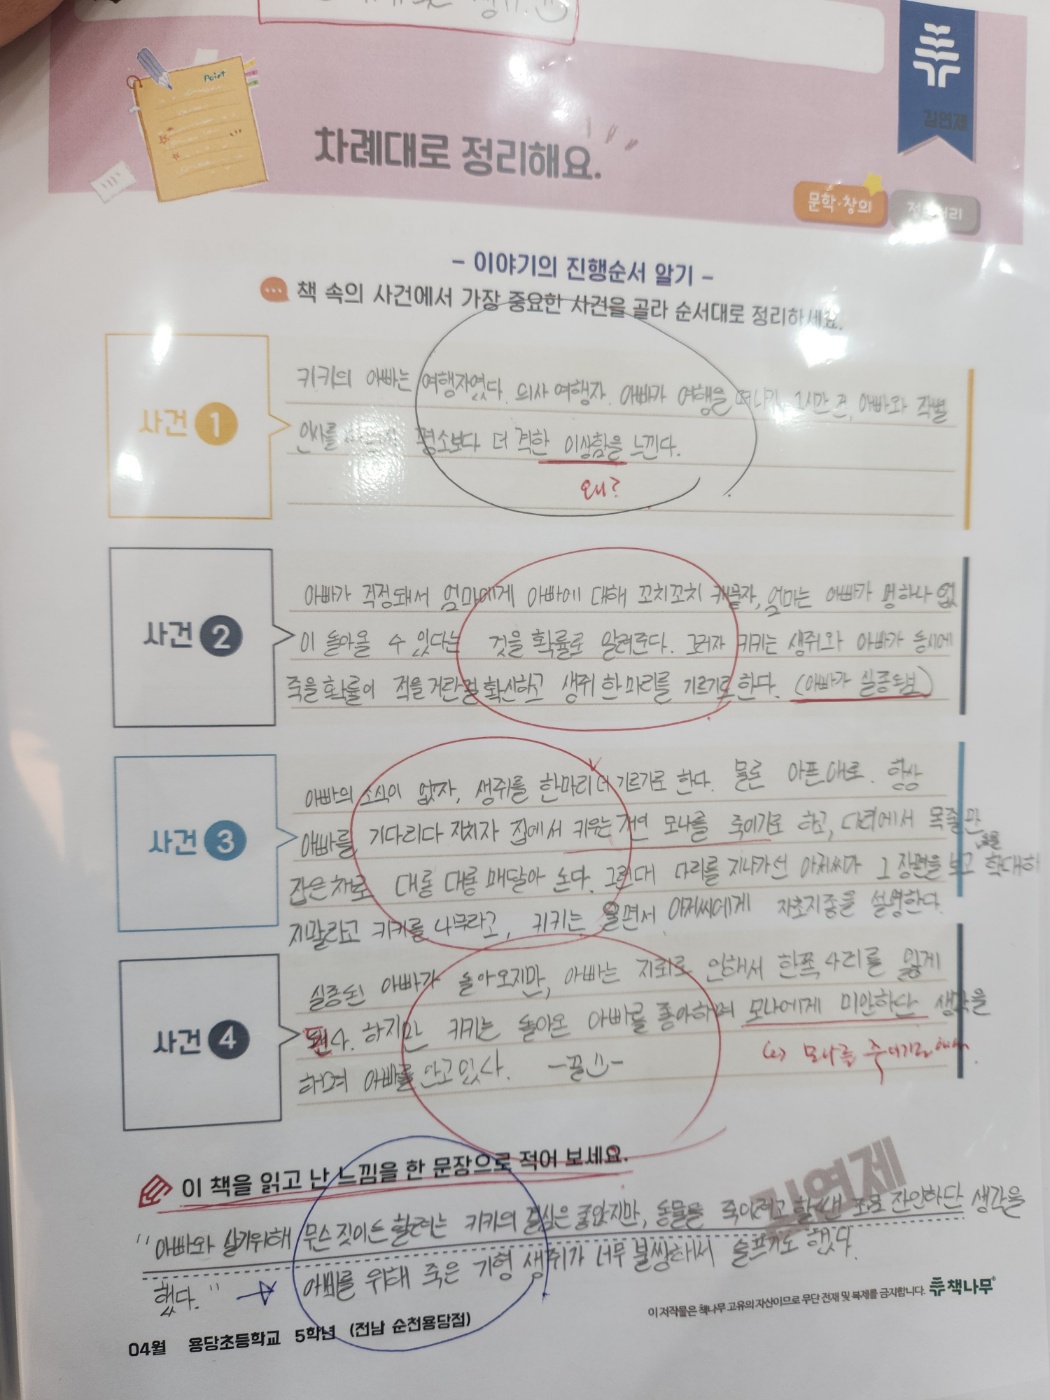 Point
차례대로 정리해요.
김연제
문학·창의
- 이야기의 진행순서 알기 -
책 속의 사건에서 가장 중요한 사건을 골라 순서대로 정리하세요.
사건 1
키키의 아빠는 여행자였다. 의사 여행자. 아빠가 여행을 떠나기 1시간 전, 아빠와 작별
인사를 평소보다 더 격한 이상함을 느낀다.
왜?
사건 2
아빠가 걱정돼서 엄마에게 아빠에 대해 꼬치꼬치 캐묻자, 엄마는 아빠가 멍하나 없
이 돌아올 수 있다는 것을 확률로 알려준다. 그러자 키키는 생쥐와 아빠가 동시에
죽을 확률이 적을 거란걸 확신하고 생쥐 한마리를 기르기로 한다. (아빠가 실종됨)
사건 3
아빠의 소식이 없자, 생쥐를 한마리 더 기르기로 한다. 물론 아픈대로. 항상
아빠를 기다리다 지치자 집에서 키우는 개인 모나를 죽이기로 하고, 다리에서 목줄만
잡은채로 대롱 대롱 매달아 논다. 그런데 다리를 지나가선 아저씨가 그 장면을 보고 학대하
지말라고 키키를 나무라고, 키키는 울면서 아저씨에게 자초지종을 설명한다.
사건 4
실종된 아빠가 돌아오지만, 아빠는 지뢰로 인해서 한쪽 다리를 잃게
된다. 하지만 키키는 돌아온 아빠를 좋아하며 모나에게 미안하단 생각을
하며 아빠를 안고있다. -끝-
모나를 죽이기로
이 책을 읽고 난 느낌을 한 문장으로 적어 보세요.
"아빠와 살기위해 무슨 짓이든 할려는 키키의 결심은 좋았지만, 동물을 죽이려고 할땐 조금 잔인하단 생각을
했다." → 아빠를 위해 죽은 기형 생쥐가 너무 불쌍해서 슬프기도 했다.
김연제
이 저작물은 책나무 고유의 자산이므로 무단 전재 및 복제를 금지합니다. 책나무
04월 용당초등학교 5학년 (전남 순천용당점)